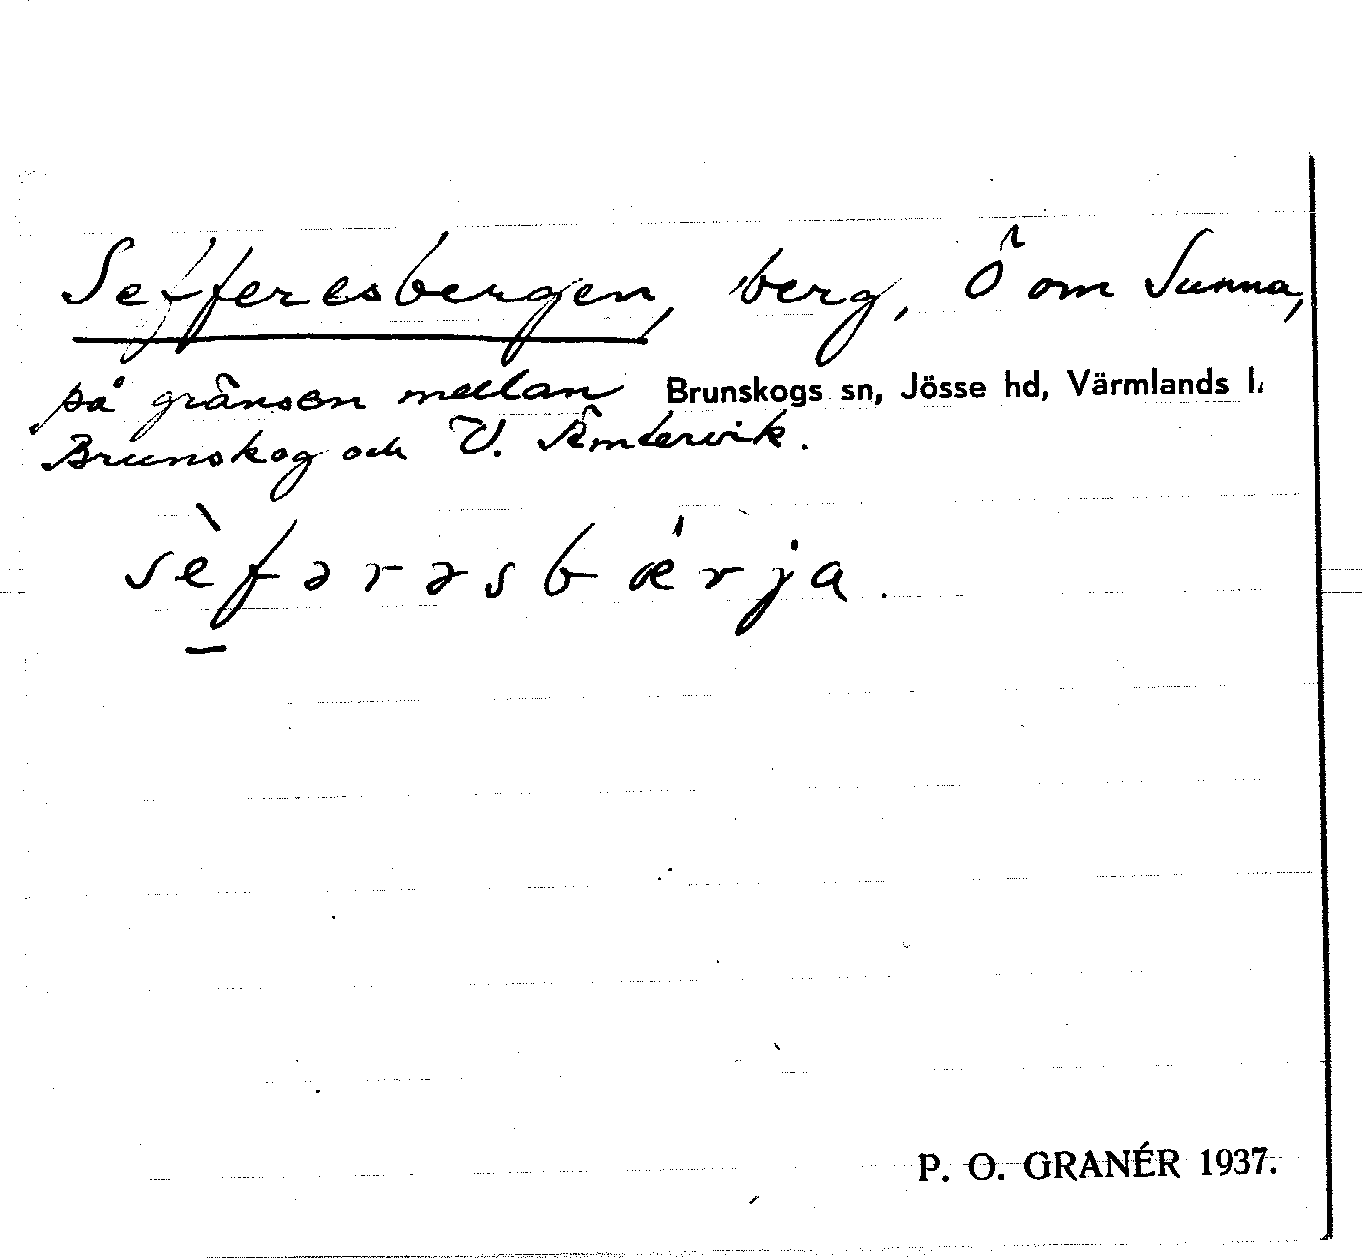 Sefferesbergen, berg, Ö om Sunna,
på gränsen mellan Brunskogs sn, Jösse hd, Värmlands l.
Brunskog och V. Ämtervik.
sèfərəsbǽrja.
P. O. GRANÉR 1937.